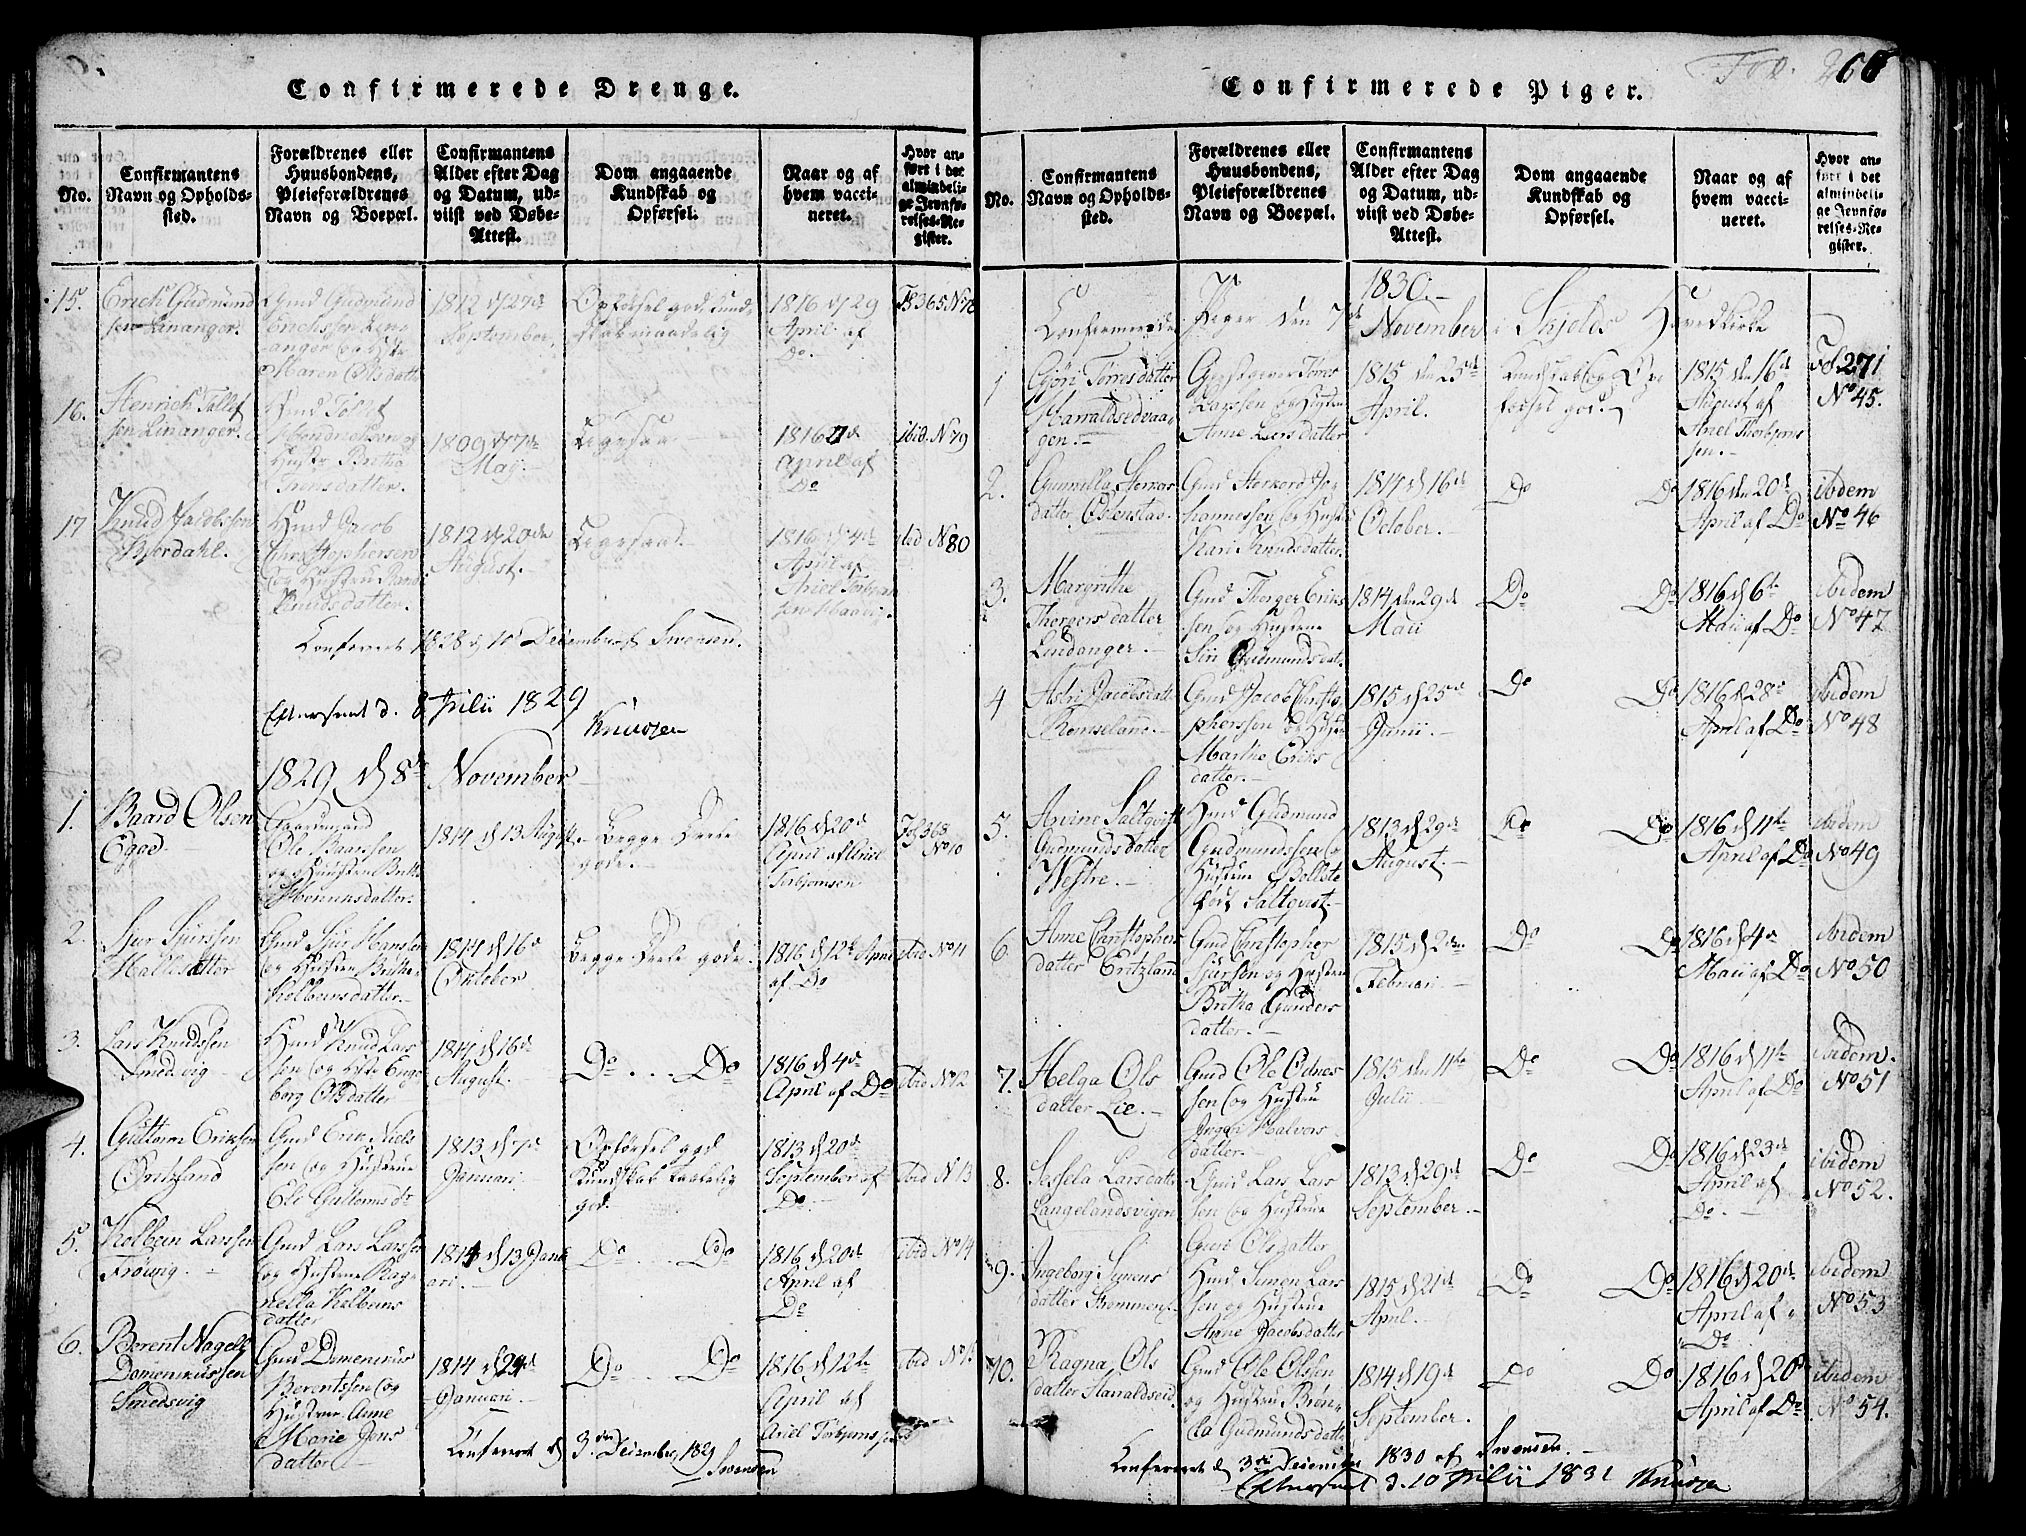 Confirmerede Drenge.
No.
Confirmantens
Navn og Opholds-
sted.
Forældrenes eller
Huusbondens,
Pleieforældrenes
Navn og Boepæl.
Confirmantens
Alder efter Dag
og Datum, ud-
viist ved Døbe-
Attest.
Dom angaaende
Kundskab og
Opførsel.
Naar og af
hvem vacci-
neret.
Hvor an-
ført i det
almindeli-
ge Jevnfø-
relses-Re-
gister.
15.
Erich Gudmund
sen Linanger.
Gmd Gudmund
Erichsen Lin-
anger og Hustr
Maren Olsdatter
1812 d 27de
September.
Opførsel god, Kund-
skab maadelig
1816 d 29
April af
Do.
F 365 No 78
16.
Henrich Tollef
sen Linanger.
Hmd Tollef
Hendrichsen og
Hustr Britha
Tronsdatter.
1809 d 7de
May.
Ligesaa.
1816 4de
April af
Do
ibid. No 79
17
Knud Jacobsen
Bjordahl.
Hmd Jacob
Christophersen
og Hustrue
Knudsdatter.
1812 d 20de
August.
Ligesaa.
1816 d 4de
April af
Ariel Torbjørn
sen
ibid No 80
Confereret 1828 d 10de December af Swensen.
Eftterseet d. 8 Julii 1829
Knudzen
1829 d 8de November
1.
Baard Olsen
Egge
Gaardmand
Ole Baarsen
og Huustrue Britte
datter.
1814 d 13 August
Begge Deele
gode.
1816 d 20de
April af Ariel
Torbjørnsen
Fol 368
No 10
2.
Sjur Sjursen
Hallesætter
Gmd Sjur Hansen
og Hustrue Britha
Kolbeinsdatter.
1814 d 16de
Oktober
Begge Deele gode.
1816 d 12te April
af Do
ibid No 11
3.
Lars Knudsen
Smedvig
Hmd Knud Lars
sen og Hustr Enge
borg Olsdatter
1814 d 16de
August.
Do . . . Do
1816 d 4de
April af Do
ibid No 12
4.
Guttorm Eriksen
Ørritsland
Gmd Erik Niels
sen og Hustrue
Eli Guttormsdr
1813 d 7de
Januari.
Opførsel god
Kundskab taalelig
god.
1813 d 20de
September af
Do.
ibid N 13
5.
Kolbein Larssen
Frøvig.
Gmd Lars Larssen
og Hustrue Rag-
nella Kolbeins
datter
1814 d 13 Janu
ari.
Do . . . Do
1816 d 20de
April af
Do
ibid No 14
6.
Berent Nagell
Domenicussen
Smedsvig
Gmd Domenicus
Berentssen og
Hustrue Anne
Marie Jens
datter
1814 d 24de
Januari.
Do Do
1816 d 12te
April af
Ariel Torbjørnsen
ibid No 15
Confereret d 3die December 1829
Swensen
Fol. 266
Confirmerede Piger.
No.
Confirmantens
Navn og Opholds-
sted.
Forældrenes eller
Huusbondens,
Pleieforældrenes
Navn og Boepæl.
Confirmantens
Alder efter Dag
og Datum, ud-
viist ved Døbe-
Attest.
Dom angaaende
Kundskab og
Opførsel.
Naar og af
hvem vacci-
neret.
Hvor an-
ført i det
almindeli-
ge Jevnfø-
relses-Re-
gister.
1830.
Confirmerede Piger den 7de November i Skjolds Hovedkirke
1
Gjøri Torresdatter
Harraldsedvaa-
gen.
Torres
Larssen og Hustrue
Anne Larsdatter
1815 den 25de
April.
Kundskab og Op-
førsel god.
1815 den 16de
August af
Ariel Thorbjørns
sen.
Fol 271
No 45.
2.
Gunnilla Storkors
datter Østenstad
Gmd Storkord Jo-
hannessen og Hustrue
Kari Knudsdatter.
1814 d 16de
October.
Do Do
1816 den 20de
April af Do
ibidem
No 46
3.
Margrethe
Thorgersdatter
Lindanger.
Gmd Thorger Eriks
sen og Hustrue
Siri Gudmundsdat.
1814 den 29de
Maii
Do Do
1816 d 6te
Maii af Do
ibidem
No 47
4
Astri Jacobsdatter
Romseland.
Gmd Jacob Christo
phersen og Hustrue
Marthe Eriks
datter.
1815 d 25de
Junii.
Do Do
1816 d 28de
April af Do
ibidem
No 48
5.
Saltqvist
Gudmundsdatter
Westre.
Hmd Gudmund
Gudmundssen og
Hustrue Bollete
født Saltqvist.
1813 d 29de
August.
Do Do
1816 d 11te
April af Do
ibidem
No 49
6.
Anne Christophers
datter Eritzland
Gmd Christopher
Sjursen og Hustrue
Britha Gunders
datter.
1815 d 2den
Februari.
Do Do
1816 d 4de
Maii af Do
ibidem
No 50
7.
Helga Ols
datter Lie.
Gmd Ole Odnes
sen og Hustrue
Ingeri Halvors
datter.
1815 den 11te
Julii
Do Do
1816 d 11te
April af Do
ibidem.
No 51
8.
Sessela Larsdatter
Langelandsvigen
Gmd Lars Lars
sen og Hustrue
Guri Olsdatter
1813 d 29de
September.
Do Do
1816 d 23de
April af
Do.
ibidem
No 52.
9.
Ingeborg Simons
datter Strømmen.
Hmd Simon Lars
sen og Hustrue
Anne Jacobsdatter
1815 d 21de
April.
Do Do
1816 d 20de
April af
Do
ibidem
No 53
10.
Ragna Ols
datter Haraldseid
Gmd Ole Olssen
og Hustrue Brøn-
la Gudmundsdatter
1814 d 19de
September.
Do Do
1816 d 20de
April af Do
ibidem
No 54.
Confereret d 3die December 1830 af Swensen.
Efterseet d. 10 Julii 1831 Knudzen